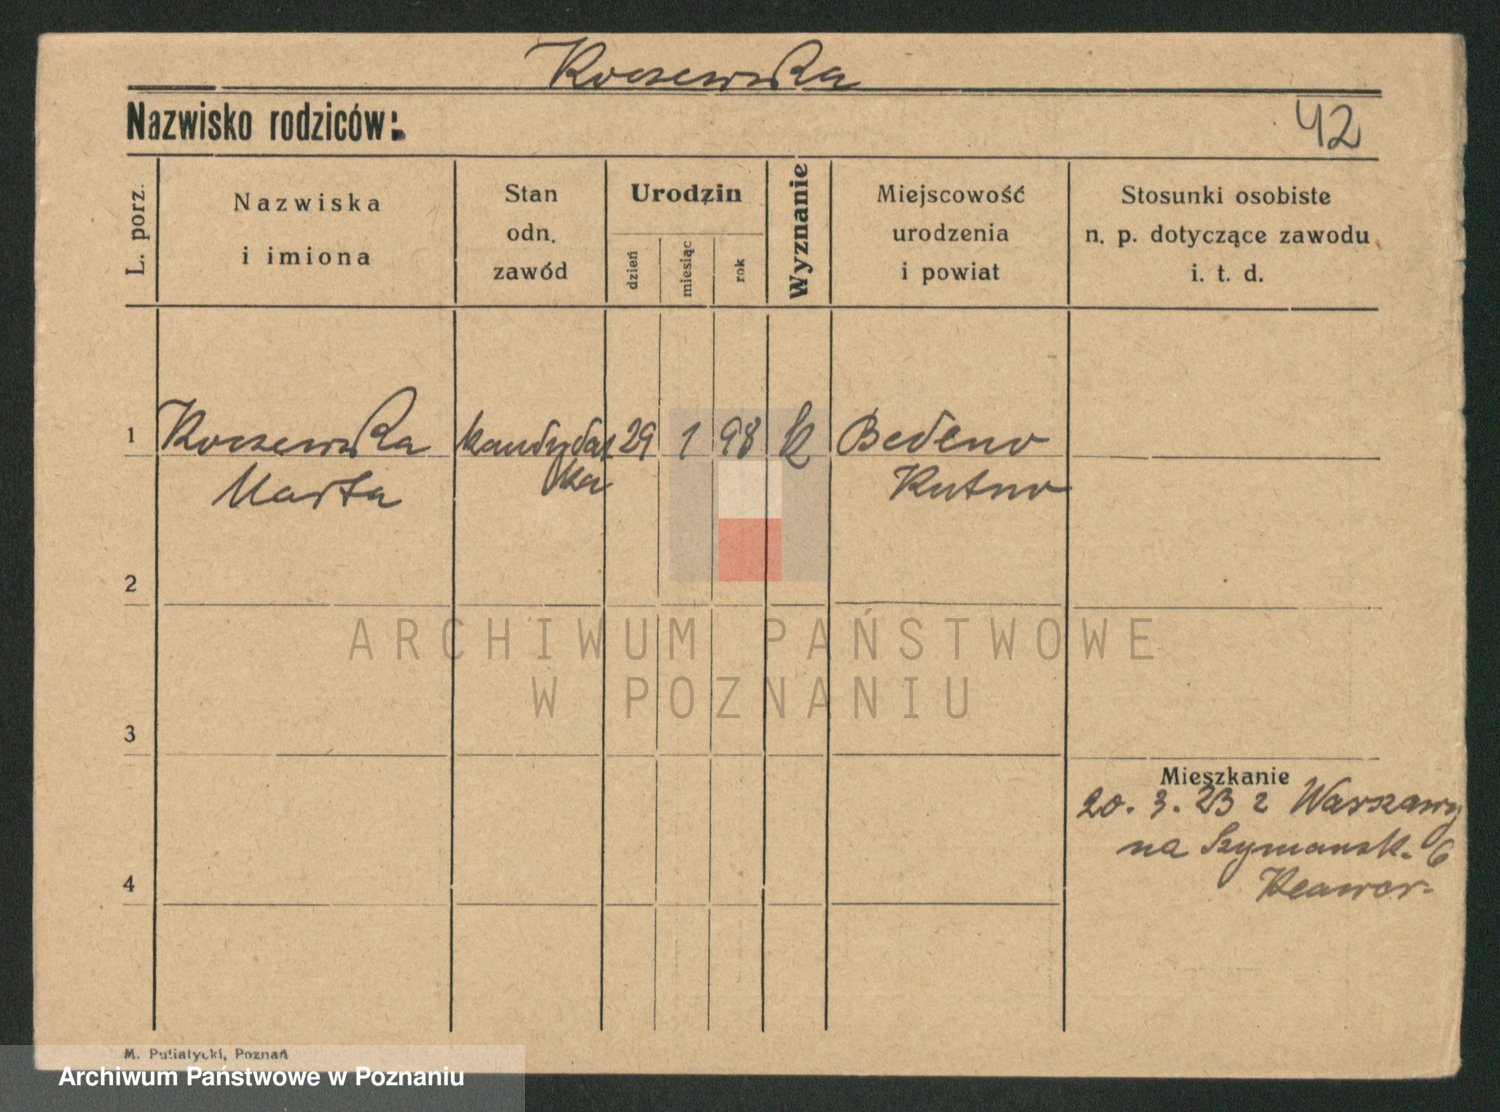 Koczewska
Nazwisko rodziców:
42
L. porz.
Nazwiska
i imiona
Stan
odn.
zawód
Urodzin
dzień
miesiąc
rok
Wyznanie
Miejscowość
urodzenia
i powiat
Stosunki osobiste
n. p. dotyczące zawodu
i. t. d.
1 Koczewska kandydat 29 1 98 k Bedlno
Marta ka Kutno
2
ARCHIWUM PAŃSTWOWE
W POZNANIU
3
Mieszkanie
20. 3. 23 z Warszawy
na Szymansk. 6
4
M. Putiatycki, Poznań
Archiwum Państwowe w Poznaniu